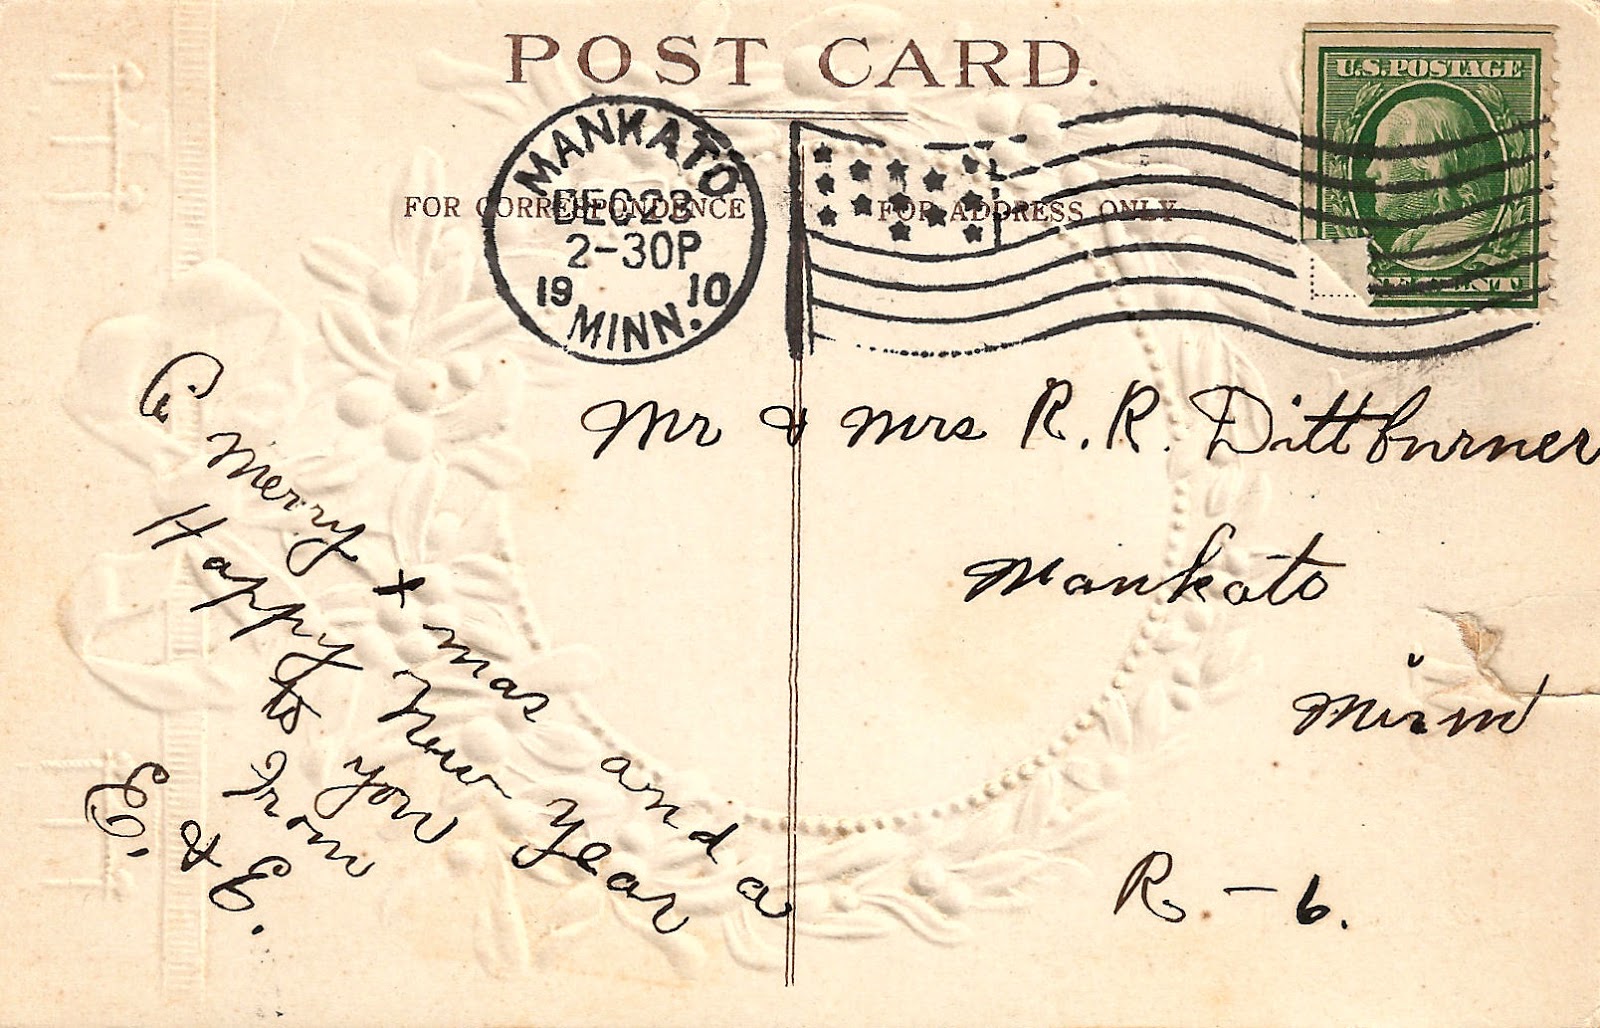 POST CARD.
U.S. POSTAGE
MANKATO
DEC 23
2-30P
19 10
MINN.
FOR CORRESPONDENCE
FOR ADDRESS ONLY
A Merry
X mas and a
Happy New Year
to you
From
E. & E.
Mr & Mrs R. R. Dittburner
Mankato
Minn
R - 6.